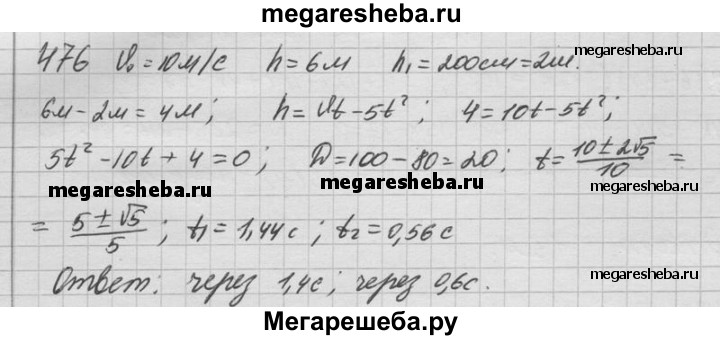 megaresheba.ru
476 V₀ = 10м/с h = 6м h₁ = 200см = 2м. megaresheba.ru
6м - 2м = 4м; h = Vt - 5t²; 4 = 10t - 5t²;
5t² - 10t + 4 = 0; D = 100 - 80 = 20; t = (10 ± 2√5)/10 =
megaresheba.ru megaresheba.ru megaresheba.ru
= (5 ± √5)/5; t₁ = 1,44с; t₂ = 0,56с
Ответ: через 1,4с; через 0,6с. megaresheba.ru
Мегарешеба.ру